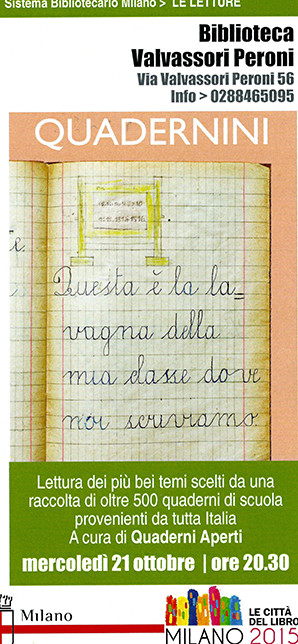 Sistema Bibliotecario Milano > LE LETTURE
Biblioteca
Valvassori Peroni
Via Valvassori Peroni 56
Info > 0288465095
QUADERNINI
Questa è la la=
vagna della
mia classe dove
noi scriviamo
Lettura dei più bei temi scelti da una
raccolta di oltre 500 quaderni di scuola
provenienti da tutta Italia
A cura di Quaderni Aperti
mercoledì 21 ottobre | ore 20.30
Milano
LE CITTÀ
DEL LIBRO
MILANO 2015